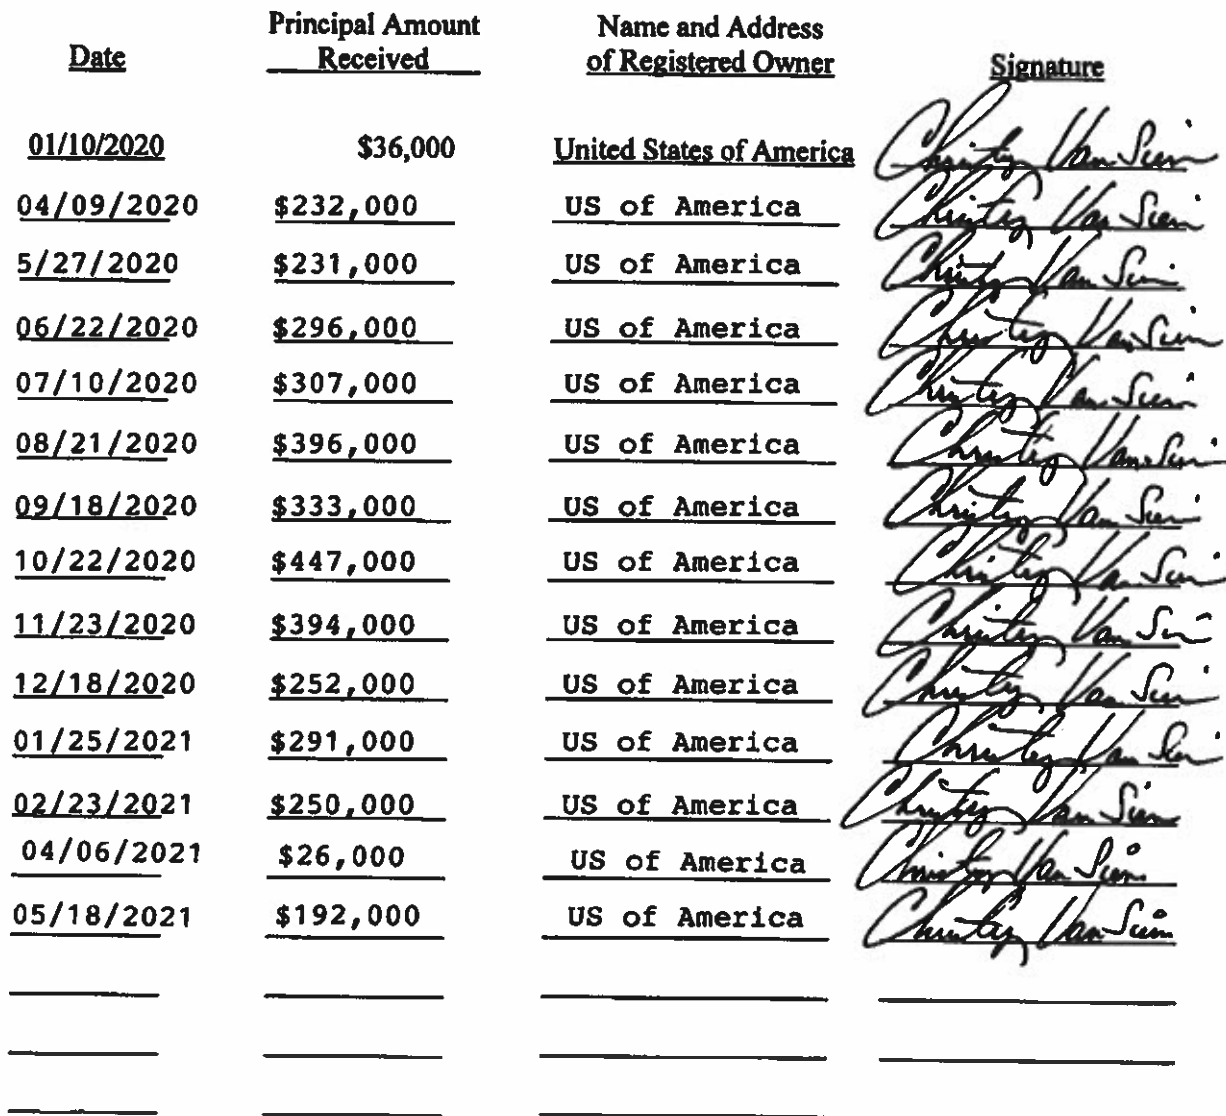 Date Principal Amount Received Name and Address of Registered Owner Signature
01/10/2020 $36,000 United States of America Christy Van Sien
04/09/2020 $232,000 US of America Christy Van Sien
5/27/2020 $231,000 US of America Christy Van Sien
06/22/2020 $296,000 US of America Christy Van Sien
07/10/2020 $307,000 US of America Christy Van Sien
08/21/2020 $396,000 US of America Christy Van Sien
09/18/2020 $333,000 US of America Christy Van Sien
10/22/2020 $447,000 US of America Christy Van Sien
11/23/2020 $394,000 US of America Christy Van Sien
12/18/2020 $252,000 US of America Christy Van Sien
01/25/2021 $291,000 US of America Christy Van Sien
02/23/2021 $250,000 US of America Christy Van Sien
04/06/2021 $26,000 US of America Christy Van Sien
05/18/2021 $192,000 US of America Christy Van Sien